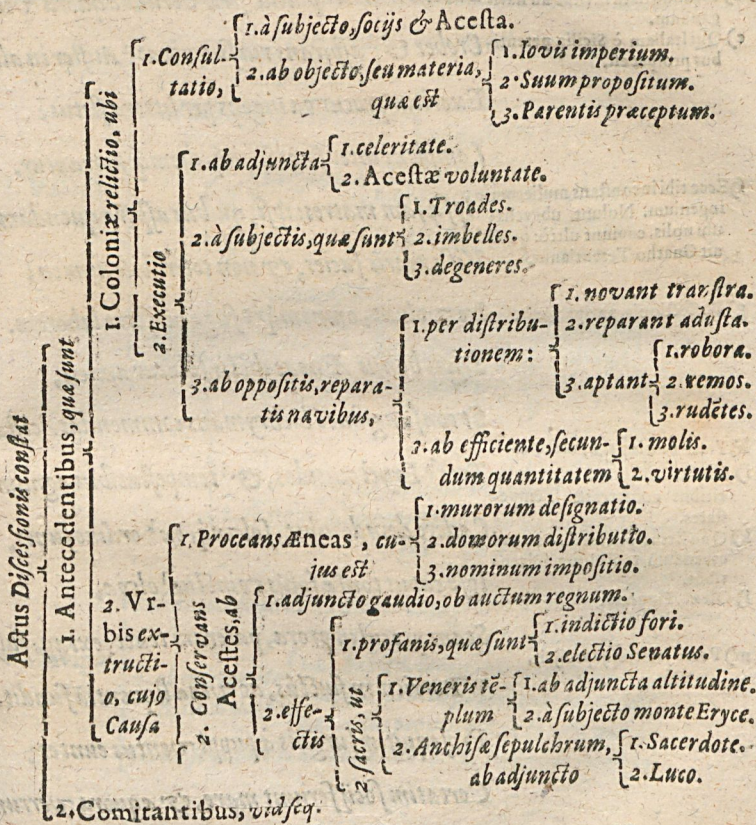 Actus Discessionis constat
1. Antecedentibus, quæ sunt
1. Coloniæ relictio, ubi
1. Consul-
tatio,
1. à subjecto, socijs & Acesta.
2. ab objecto, seu materia,
quæ est
1. Iovis imperium.
2. Suum propositum.
3. Parentis præceptum.
2. Executio,
1. ab adjuncta
1. celeritate.
2. Acestæ voluntate.
2. à subjectis, quæ sunt
1. Troades.
2. imbelles.
3. degeneres.
3. ab oppositis, repara-
tis navibus,
1. per distribu-
tionem:
1. novant transtra.
2. reparant adusta.
3. aptant
1. robora.
2. remos.
3. rudētes.
2. ab efficiente, secun-
dum quantitatem
1. molis.
2. virtutis.
2. Vr-
bis ex-
tructi-
o, cujo
Causa
1. Proceans Æneas, cu-
jus est
1. murorum designatio.
2. domorum distributio.
3. nominum impositio.
2. Conservans
Acestes, ab
1. adjuncto gaudio, ob auctum regnum.
2. effe-
ctis
1. profanis, quæ sunt
1. indictio fori.
2. electio Senatus.
2. sacris, ut
1. Veneris tē-
plum
1. ab adjuncta altitudine.
2. à subjecto monte Eryce.
2. Anchisæ sepulchrum,
ab adjuncto
1. Sacerdote.
2. Luco.
2. Comitantibus, vid seq.